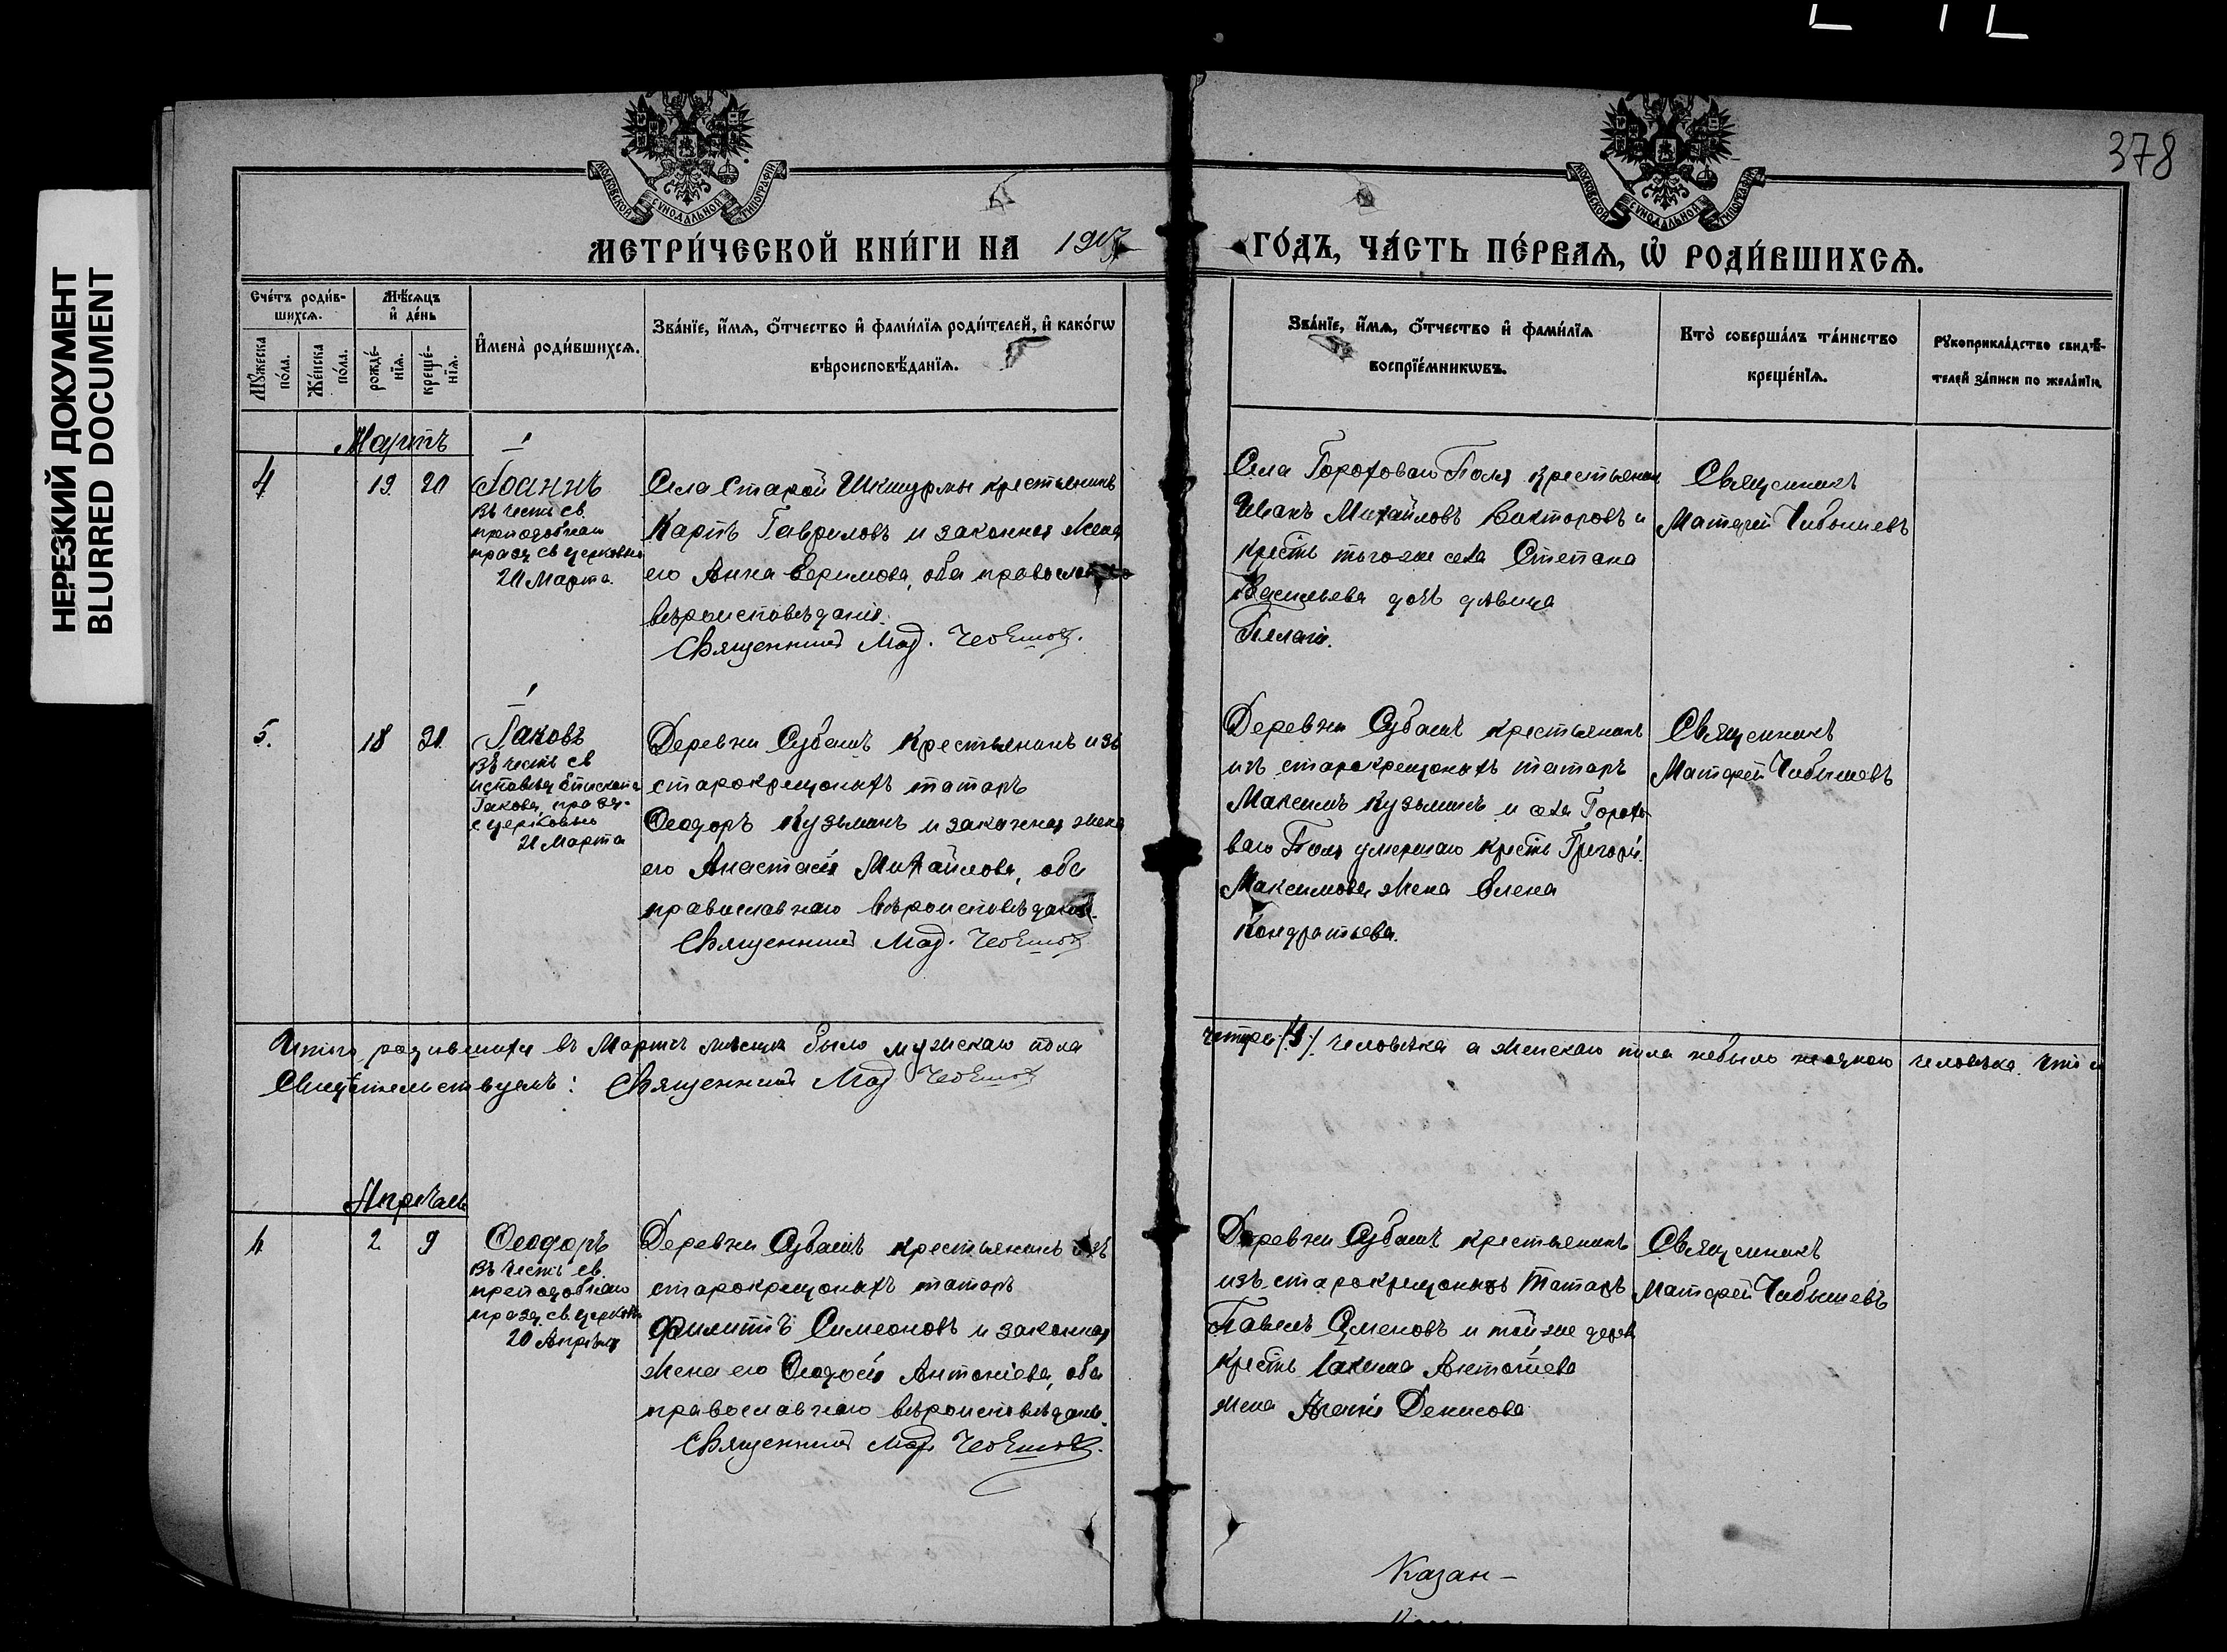 НЕРЕЗКИЙ ДОКУМЕНТ
BLURRED DOCUMENT
378
МОСКОВСКОЙ СѴНОДАЛЬНОЙ ТИПОГРАФІИ
МОСКОВСКОЙ СѴНОДАЛЬНОЙ ТИПОГРАФІИ
МЕТРИ́ЧЕСКОЙ КНИ́ГИ НА
ГО́ДЪ, ЧА́СТЬ ПЕ́РВАѦ, Ѡ҆ РОДИ́ВШИХСѦ.
Сче́тъ роди́в-
шихсѧ.
Мꙋ́жеска
по́ла.
Же́нска
по́ла.
Мѣ́сѧцъ
и҆ де́нь
рожде́-
нїѧ.
креще́-
нїѧ.
И҆мена̀ роди́вшихсѧ.
Зва́нїе, и҆́мѧ, ѻ҆́тчество и҆ фами́лїѧ роди́телей, и҆ како́гѡ
вѣроисповѣ́данїѧ.
Зва́нїе, и҆́мѧ, ѻ҆́тчество и҆ фами́лїѧ
воспрїе́мникѡвъ.
Кто̀ соверша́лъ та́инство
креще́нїѧ.
Рꙋкоприкла́дство свидѣ́-
телей за́писи по жела́нїю
Мартъ
4
19
20
Іоаннъ
въ честь св.
преподобнаго
празд. св церковью
20 Марта.
Села Старой Икшурмы крестьянинъ
Карпъ Гавриловъ и законная жена
его Анна Ефимова, оба православнаго
вѣроисповѣданія.
Священникъ Мат. Чебышевъ.
Села Гороховаго Поля крестьянинъ
Иванъ Михайловъ Викторовъ и
крест. того-же села Степана
Васильева дочь дѣвица
Священникъ
Матѳей Чибышевъ
5.
18
21
Іаковъ
въ честь св
исповѣд. Епископа
Іакова, празд.
с церковью
21 Марта
Деревни Субашъ крестьянинъ изъ
старокрещоныхъ татаръ
Ѳеодоръ Кузьминъ и законная жена
его Анастасія Михайлова, оба
православнаго вѣроисповѣданія.
Священникъ Мат. Чебышевъ
Деревни Субашъ крестьянинъ
изъ старокрещоныхъ татаръ
Максимъ Кузьминъ и села Горохо-
ваго Поля умершаго крест. Григорія
Максимова жена Елена
Кондратьева.
Священникъ
Матѳей Чибышевъ
Итого родившихся въ Мартѣ мѣсяцѣ было мужскаго пола
четыре (4) человѣка а женскаго пола небыло неодного человѣка. Что и
Свидѣтельствуемъ: Священникъ Мат. Чебышевъ
Апрѣль
6.
2
9
Ѳеодоръ
въ честь св.
преподобнаго
празд. св. церковью
20 Апрѣля
Деревни Субашъ крестьянинъ изъ
старокрещоныхъ татаръ
Филиппъ Симеоновъ и законная
жена его Ѳеодосія Антоніева, оба
православнаго вѣроисповѣданія.
Священникъ Мат. Чебышевъ.
Деревни Субашъ крестьянинъ
изъ старокрещоныхъ татаръ
Павелъ Семеновъ и той-же дерев.
крест. Іакима Антоніева
жена Денисова
Священникъ
Матѳей Чибышевъ
Казан-